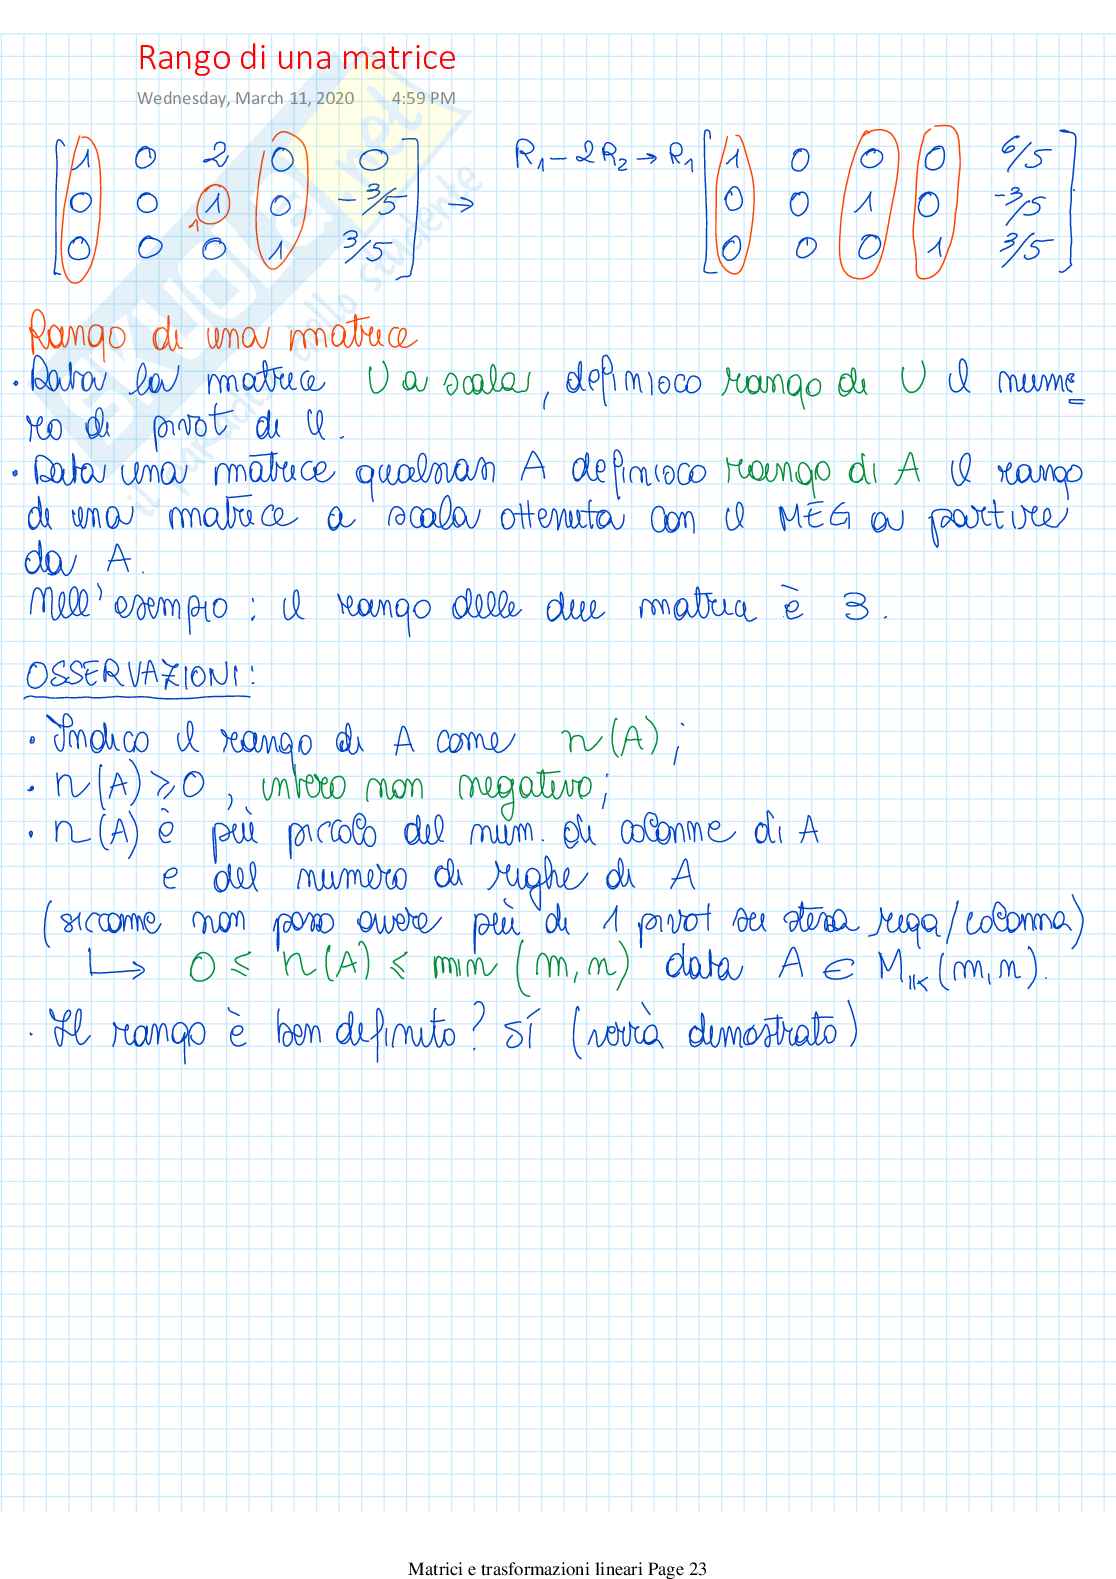 Rango di una matrice
Wednesday, March 11, 2020 4:59 PM
[1 0 2 0 0] R₁ - 2R₂ → R₁ [1 0 0 0 6/5]
[0 0 1 0 -3/5] → [0 0 1 0 -3/5]
[0 0 0 1 3/5] [0 0 0 1 3/5]
1
Rango di una matrice
• Data la matrice U a scala, definisco rango di U il nume
ro di pivot di U.
• Data una matrice qualsiasi A definisco rango di A il rango
di una matrice a scala ottenuta con il MEG a partire
da A.
Nell'esempio: il rango delle due matrici è 3.
OSSERVAZIONI:
• Indico il rango di A come r(A);
• r(A) ≥ 0, intero non negativo;
• r(A) è più piccolo del num. di colonne di A
e del numero di righe di A
(siccome non posso avere più di 1 pivot su stessa riga/colonna)
↳ 0 ≤ r(A) ≤ min (m,n) data A ∈ M_K(m,n).
• Il rango è ben definito? Sí (verrà dimostrato)
Matrici e trasformazioni lineari Page 23